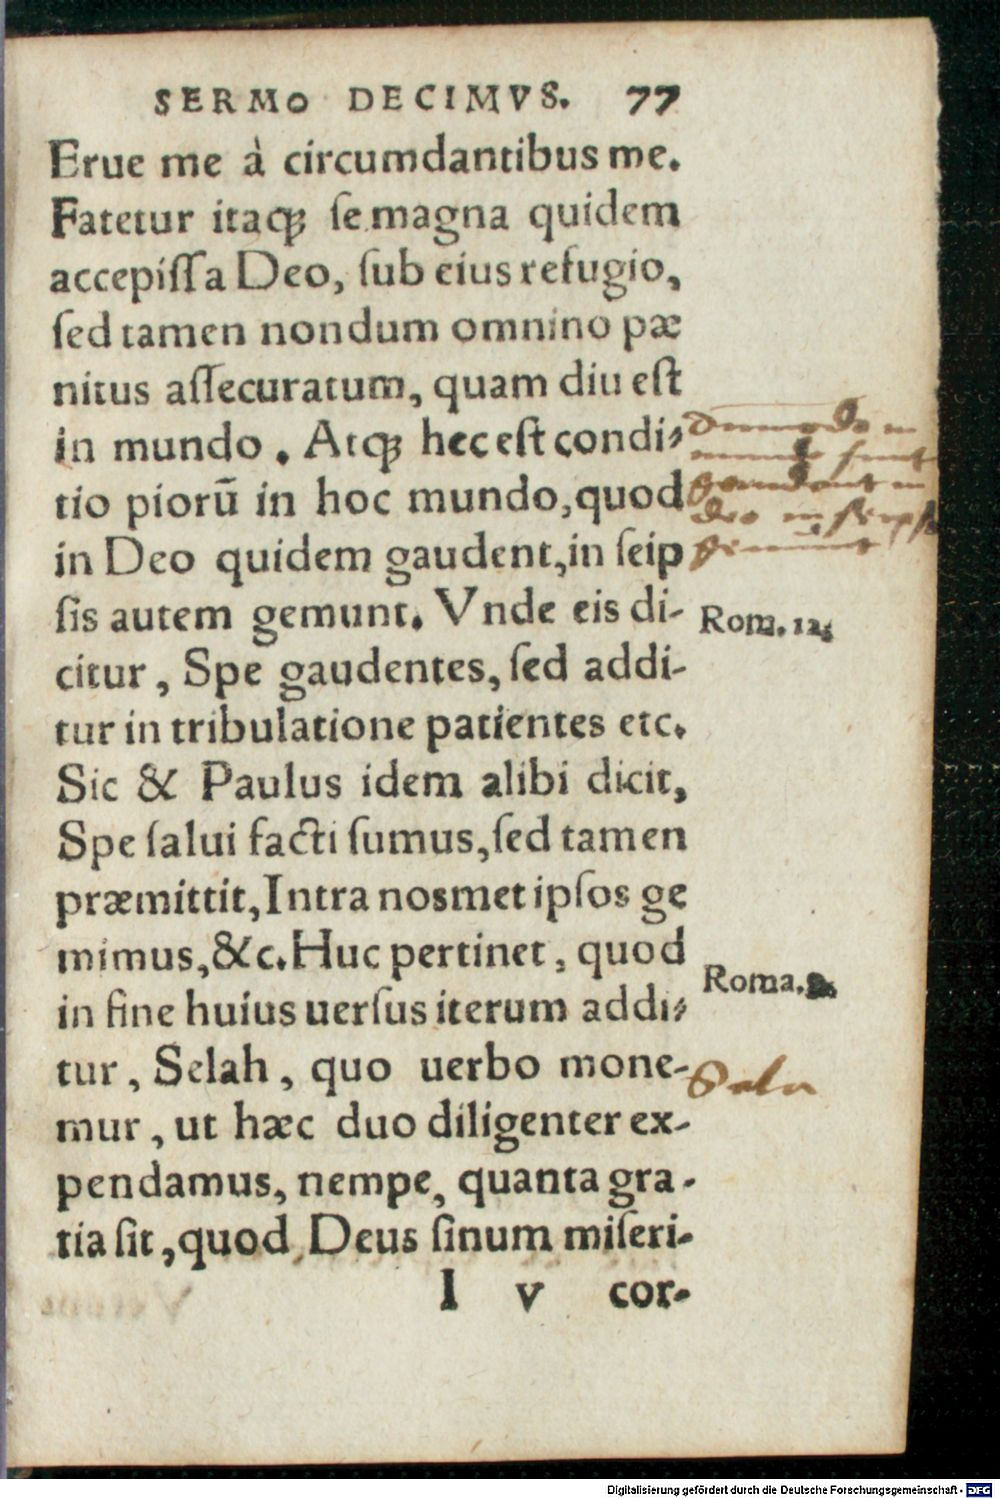 SERMO DECIMVS. 77
Erue me à circumdantibus me.
Fatetur itaqꝫ ſe magna quidem
accepiſſa Deo, ſub eius refugio,
ſed tamen nondum omnino pæ
nitus aſſecuratum, quam diu eſt
in mundo. Atqꝫ hec eſt condi-
tio piorũ in hoc mundo, quod
in Deo quidem gaudent, in ſeip
ſis autem gemunt. Vnde eis di-
citur, Spe gaudentes, ſed addi-
tur in tribulatione patientes etc.
Sic & Paulus idem alibi dicit,
Spe ſalui facti ſumus, ſed tamen
præmittit, Intra nosmet ipſos ge
mimus, &c. Huc pertinet, quod
in fine huius uerſus iterum addi-
tur, Selah, quo uerbo mone-
mur, ut hæc duo diligenter ex-
pendamus, nempe, quanta gra-
tia ſit, quod Deus ſinum miſeri-
I v cor-
in
mundo ſunt
gaudent in
deo in ſeipſ
gemunt
Rom. 12.
Roma. 8.
Sela
Digitalisierung gefördert durch die Deutsche Forschungsgemeinschaft - DFG